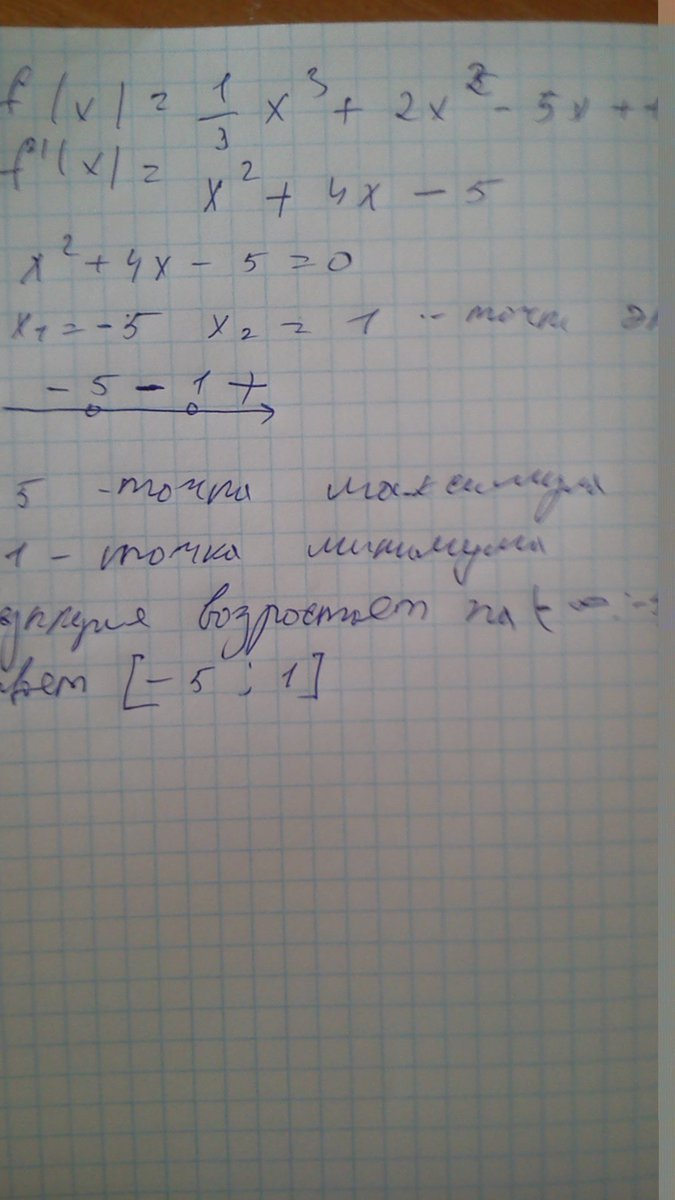 f(x) = 1/3 x³ + 2x² - 5x +
f'(x) = x² + 4x - 5
x² + 4x - 5 = 0
x₁ = -5 x₂ = 1 - точки
- 5 - 1 +
5 - точка максимума
1 - точка минимума
возростает на (-∞; -5
[-5; 1]